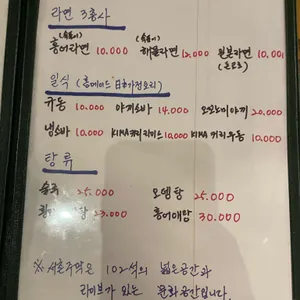 라면 3총사
홍어라면 10.000 해물라면 12.000 원본라면 10.000
일식 (홈메이드 日本가정요리)
규동 10.000 야끼소바 14.000 오코노미야끼 20.000
냉소바 10.000 KIMA카레라이스 10.000 KIMA 카레우동 10.000
탕 류
술국 25.000 오뎅탕 25.000
23.000 홍어애탕 30.000
102석의 넓은공간과
라이브가 있는 문화공간입니다.